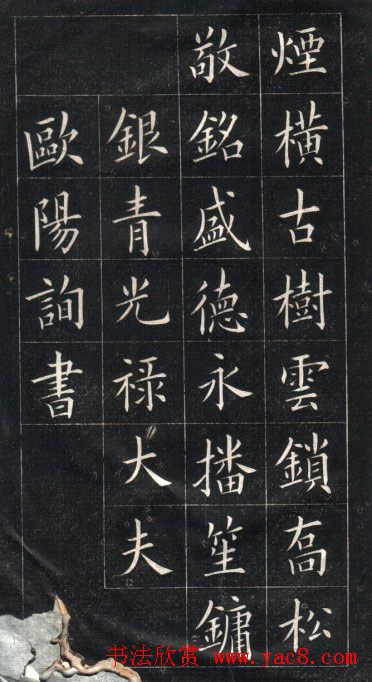 煙橫古樹雲鎖高松
敬銘盛德永播笙鏞
銀青光祿大夫
歐陽詢書
书法欣赏 www.yac8.com